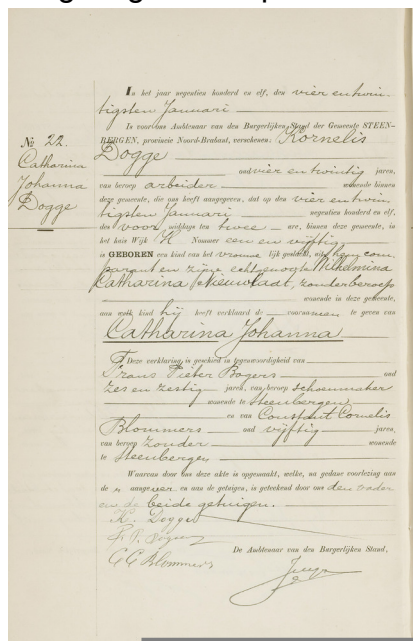 In het jaar negentien honderd en elf, den vier en twin-
tigsten Januari
Is voor ons Ambtenaar van den Burgerlijken Stand der Gemeente STEEN-
BERGEN, provincie Noord-Brabant, verschenen: Kornelis
Dogge
oud vier en twintig jaren,
van beroep arbeider wonende binnen
deze gemeente, die ons heeft aangegeven, dat op den vier en twin-
tigsten Januari negentien honderd en elf,
des voor middags ten twee ure, binnen deze gemeente, in
het huis Wijk K Nommer een en vijftig
is GEBOREN een kind van het vrouwe lijk geslacht, uit hem com-
parant en zijne echtgenoote Wilhelmina
Catharina Nieuwstadt, zonder beroep
wonende in deze gemeente,
aan welk kind hij heeft verklaard de voornamen te geven van
Catharina Johanna
Deze verklaring is geschied in tegenwoordigheid van
Frans Pieter Bogers oud
zes en zestig jaren, van beroep schoenmaker
wonende te Steenbergen
en van Constant Cornelis
Blommers oud vijftig jaren,
van beroep zonder wonende
te Steenbergen
Waarvan door ons deze akte is opgemaakt, welke, na gedane voorlezing aan
de aangever en aan de getuigen, is geteekend door ons den vader
en de beide getuigen.
K. Dogge
F. P. Bogers
C C Blommers
De Ambtenaar van den Burgerlijken Stand,
No 22.
Catharina
Johanna
Dogge